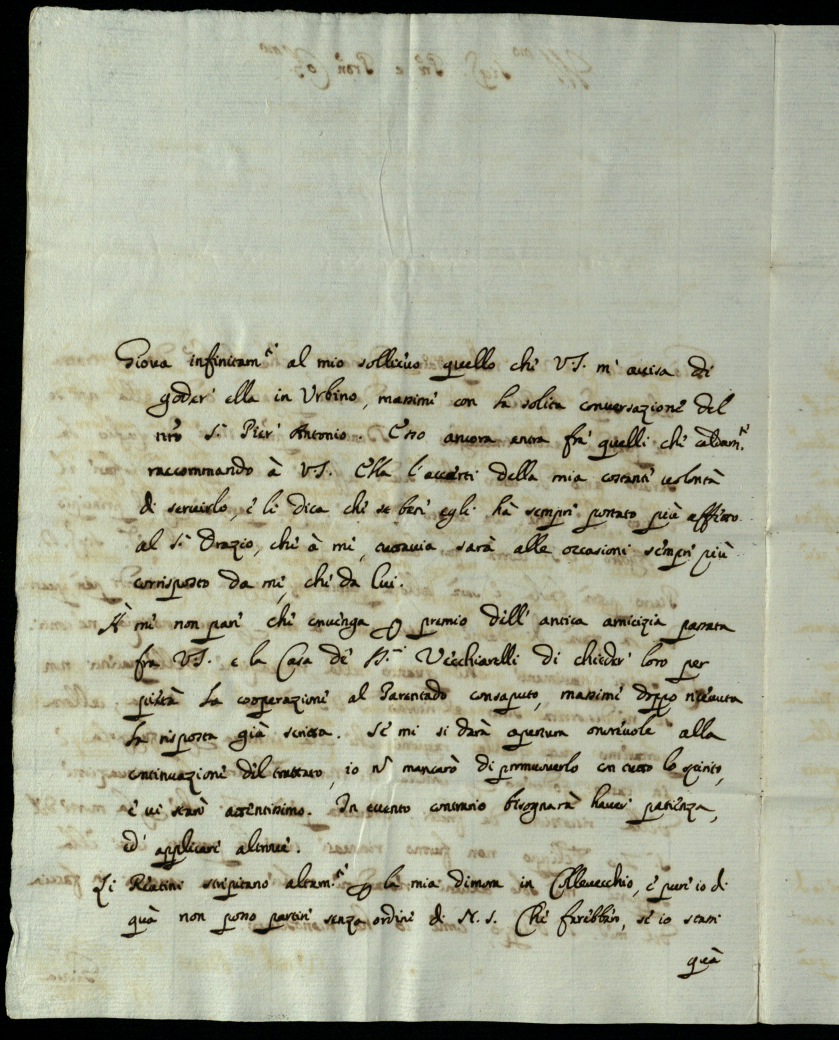 Giova infinitam.te al mio sollievo quello che V.S. m'avisa di
goder' ella in Urbino, massime con la solita conversazione del
nro S.r Pier' Antonio. Esso ancora entra frà quelli che caldam.te
raccommando à V.S. Ella l'accerti della mia costante volontà
di servirlo, e li dica che se ben' egli hà sempre portato più affetto
al S.r Orazio, che à me, tuttavia sarà alle occasioni sempre più
corrisposto da me, che da lui.
À me non pare che convenga p premio dell' antica amicizia passata
frà V.S. e la Casa de' SS.ri Vecchiarelli di chieder loro per
pietà la cooperazione al Parentado consaputo, massime doppo ricevuta
la risposta già scritta. Se mi si darà apertura onorevole alla
continuazione del trattato, io nò mancarò di promuoverlo con tutto lo spirito,
e vi starò attentissimo. In evento contrario bisognarà haver patienza,
ed' applicare altrove.
Li Reatini strepitano altam.te p la mia dimora in Collevecchio, e pure io di
quà non posso partire senza ordine di N.S. Che farebbero, se io stassi
quà